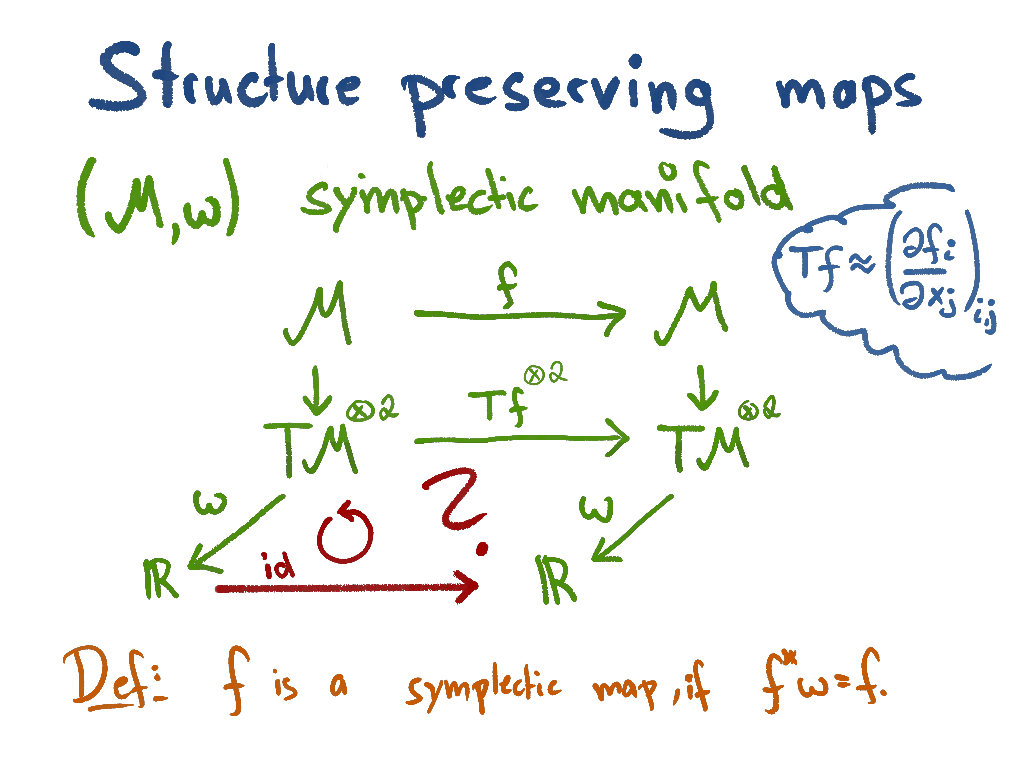 Structure preserving maps
(M, ω) symplectic manifold
Tf ≈ (∂fᵢ/∂xⱼ)ᵢ,ⱼ
M f M
TM⊗2 Tf⊗2 TM⊗2
ω ? ω
ℝ id ℝ
Def: f is a symplectic map, if f*ω=f.